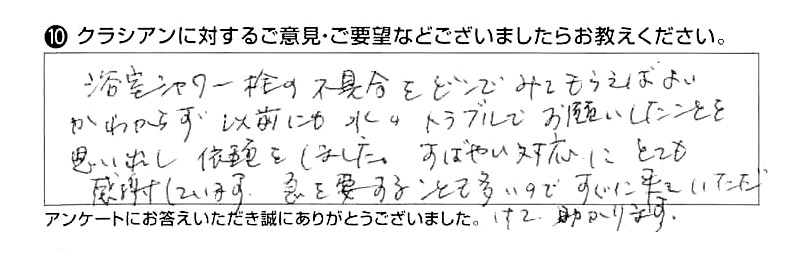 ❿ クラシアンに対するご意見・ご要望などございましたらお教えください。
浴室シャワー栓の不具合をどこでみてもらえばよい
かわからず以前にも水のトラブルでお願いしたことを
思い出し依頼をしました。すばやい対応にとても
感謝しています。急を要することも多いのですぐに来ていただ
けて助かります。
アンケートにお答えいただき誠にありがとうございました。